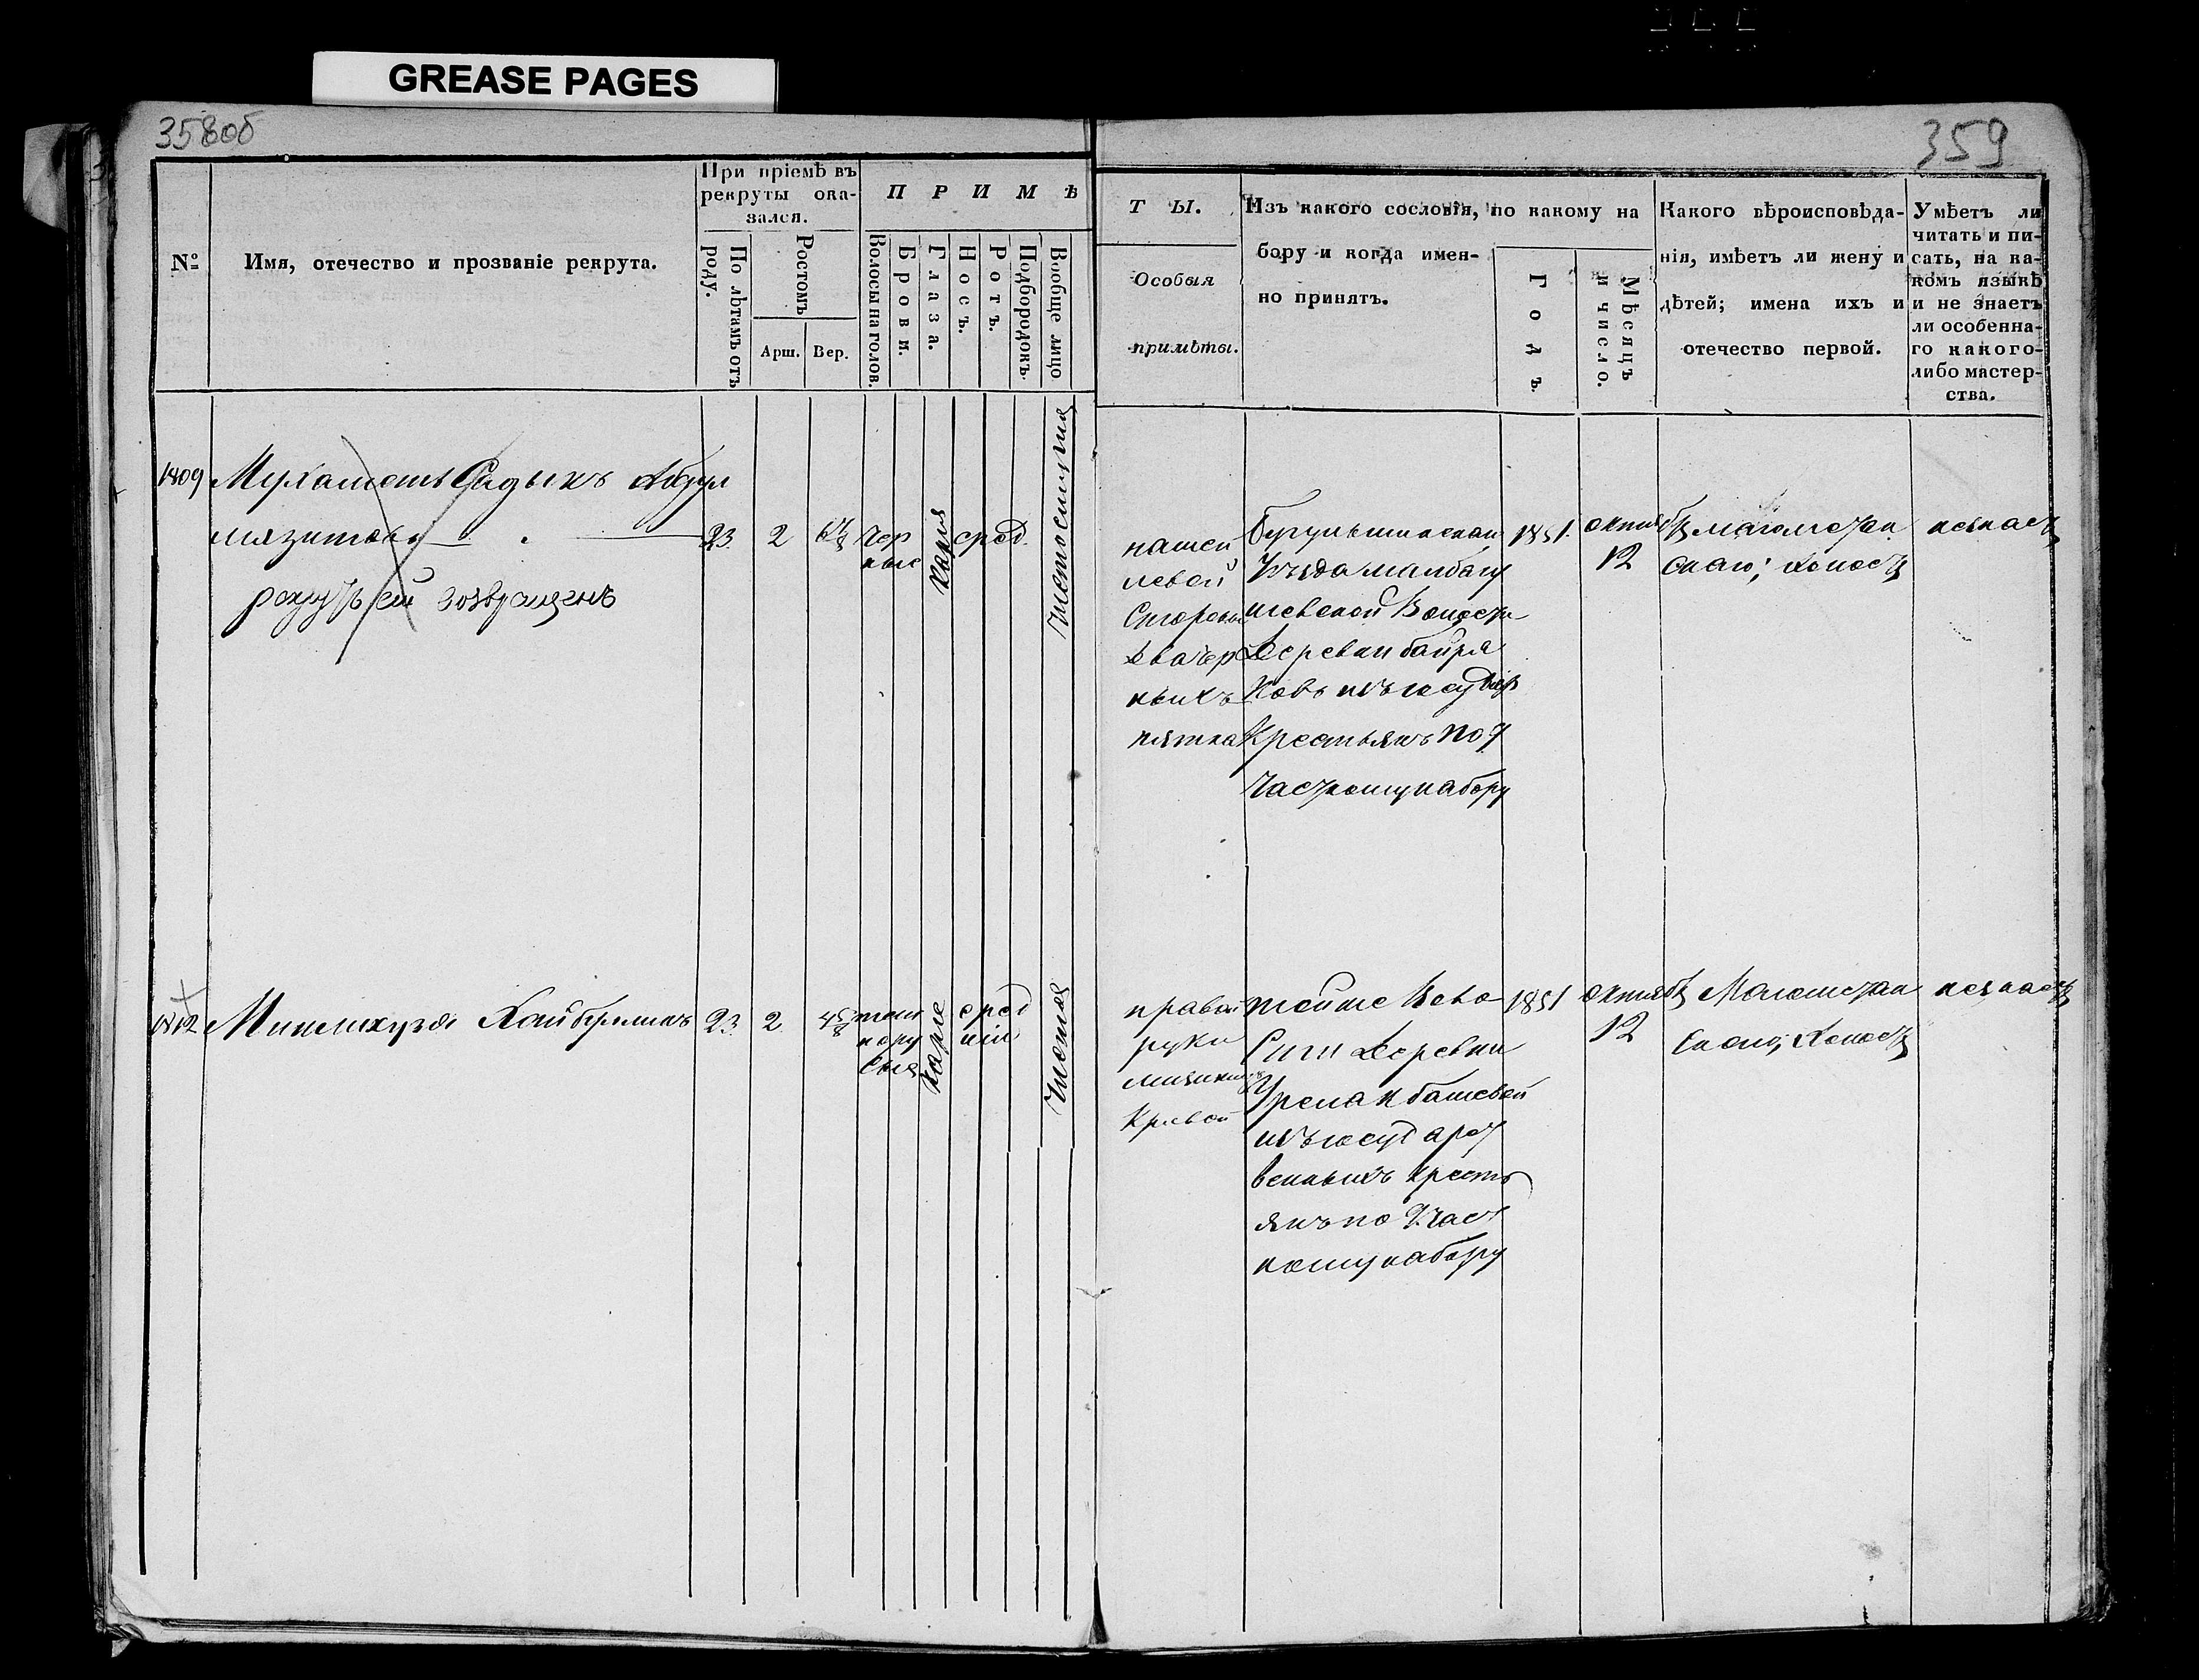 GREASE PAGES
358об
359
№
Имя, отечество и прозваніе рекрута.
При пріемѣ въ
рекруты ока-
зался.
По лѣтамъ отъ
роду.
Ростомъ
Арш.
Вер.
П Р И М Ѣ
Волосы на голов.
Брови.
Глаза.
Носъ.
Ротъ.
Подбородокъ.
Вообще лицо
Т Ы.
Особыя
примѣты.
Изъ какого сословія, по какому на
бору и когда имен-
но принятъ.
Годъ.
Мѣсяцъ
и число.
Какого вѣроисповѣда-
нія, имѣетъ ли жену и
дѣтей; имена ихъ и
отечество первой.
Умѣетъ ли
читать и пи-
сать, на ка-
комъ языкѣ
и не знаетъ
ли особенна-
го какого-
либо мастер-
ства.
1809
Мухаметъ Садыкъ Абдул
мязитовъ
возвращенъ
23
2
чер
ные
карія
сред
нашей
левой
Стороны
два чер
ныхъ
пятна
Бугульминскаго
Уезда
Волости
Деревни Байря
ковъ изъ государ
Крестьянъ по 9
частному набору
1851
октября
12
магометан
скаго; холостъ
незнаетъ
1812
23
2
4 5/8
темно
русыя
каріе
сред
ніе
Чистое
правой
руки
мизинецъ
Кривой
тойже Воло
сти Деревни
изъ государст
венныхъ кресть
янъ по 9 част
ному набору
1851
октября
12
Магометан
скаго; Холостъ
незнаетъ